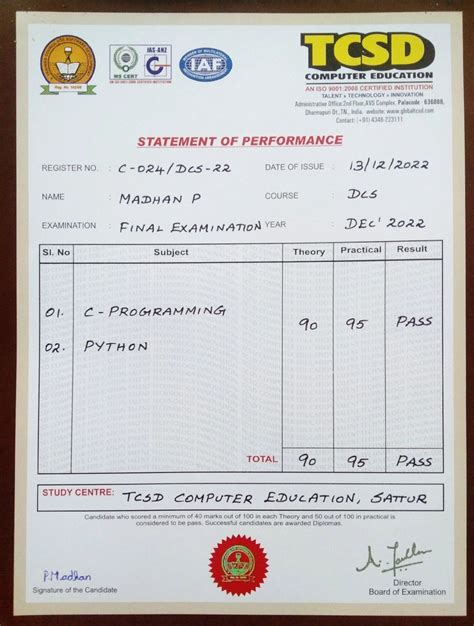 TCSD
COMPUTER EDUCATION
AN ISO 9001:2008 CERTIFIED INSTITUTION
TALENT • TECHNOLOGY • INNOVATION
Administrative Office:2nd Floor,AVS Complex, Palacode - 636808,
Dharmapuri Dt.,TN., India. website: www.globaltcsd.com
Contact: (+91) 4348-223111
JAS-ANZ
MS CERT
IAF
STATEMENT OF PERFORMANCE
REGISTER NO. : C-024/DCS-22 DATE OF ISSUE : 13/12/2022
NAME : MADHAN P COURSE : DCS
EXAMINATION : FINAL EXAMINATION YEAR : DEC' 2022
Sl. No Subject Theory Practical Result
01. C-PROGRAMMING
90 95 PASS
02. PYTHON
TOTAL 90 95 PASS
STUDY CENTRE: TCSD COMPUTER EDUCATION, SATTUR
Candidate who scored a minimum of 40 marks out of 100 in each Theory and 50 out of 100 in practical is
considered to be pass. Successful candidates are awarded Diplomas.
P.Madhan
Signature of the Candidate
Director
Board of Examination